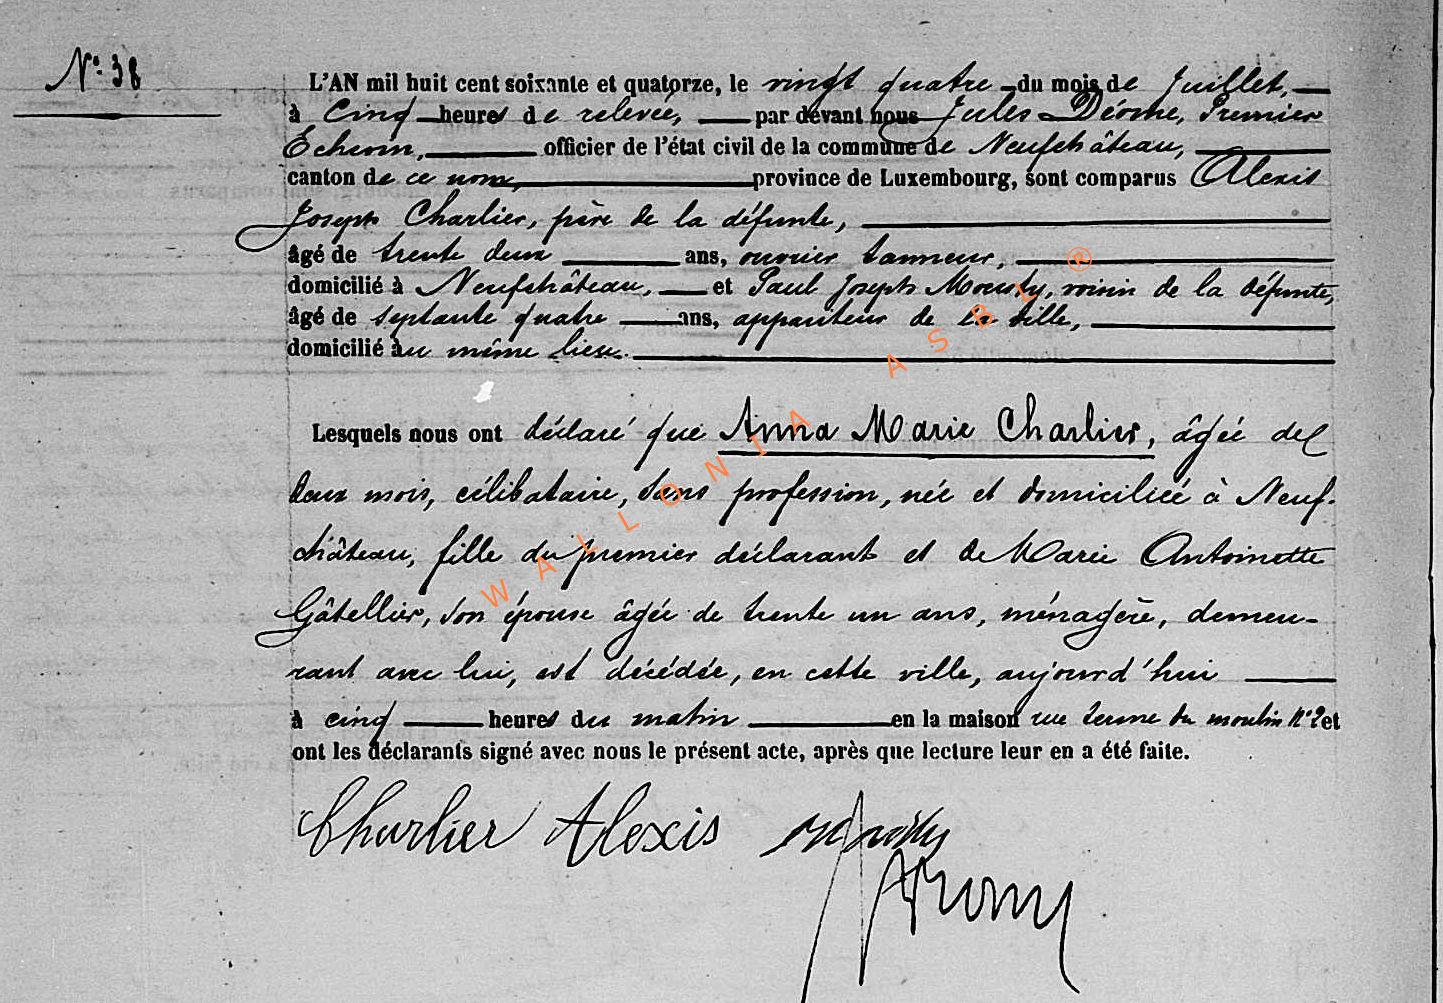 N° 38
L'AN mil huit cent soixante et quatorze, le vingt quatre du mois de Juillet,
à cinq heures de relevée, par devant nous Jules Déome, Premier
Echevin, officier de l'état civil de la commune de Neufchâteau,
canton de ce nom, province de Luxembourg, sont comparus Alexis
Joseph Charlier, père de la défunte,
âgé de trente deux ans, ouvrier tanneur,
domicilié à Neufchâteau, et Paul Joseph Mousty, voisin de la défunte,
âgé de septante quatre ans, appariteur de la ville,
domicilié au même lieu.
Lesquels nous ont déclaré que Anna Marie Charlier, âgée de
deux mois, célibataire, sans profession, née et domiciliée à Neuf-
château, fille du premier déclarant et de Marie Antoinette
Gâtellier, son épouse âgée de trente un ans, ménagère, demeu-
rant avec lui, est décédée, en cette ville, aujourd'hui
à cinq heures du matin en la maison rue terme du moulin N° 2 et
ont les déclarants signé avec nous le présent acte, après que lecture leur en a été faite.
Charlier Alexis
WALLONIA ASBL ®